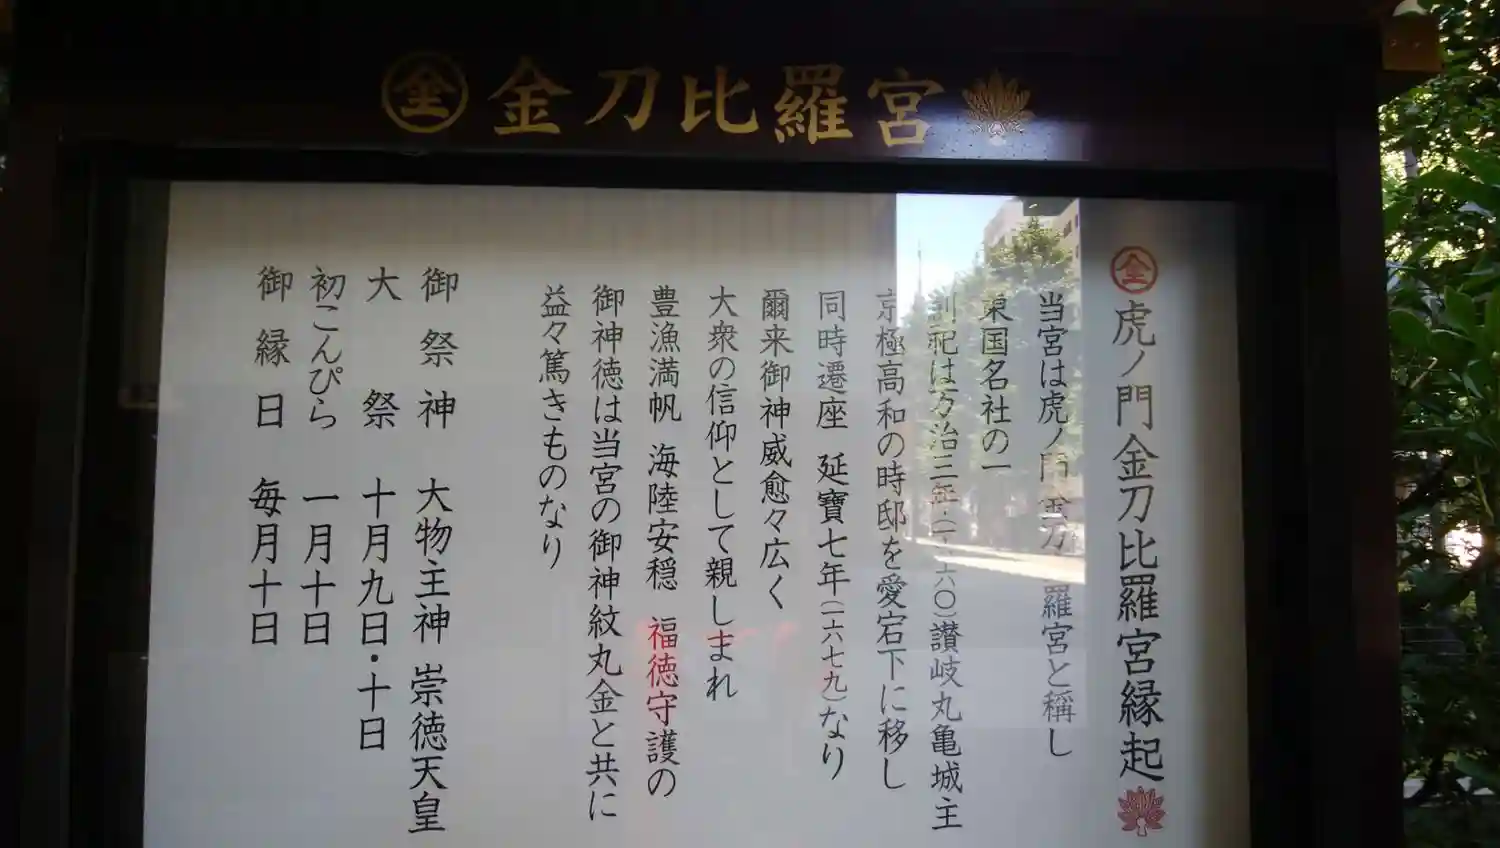 金 金刀比羅宮
金 虎ノ門金刀比羅宮縁起
当宮は虎ノ門金刀 羅宮と稱し
東国名社の一
創祀は万治三年(一六六〇)讃岐丸亀城主
京極高和の時邸を愛宕下に移し
同時遷座 延寶七年(一六七九)なり
爾来御神威愈々広く
大衆の信仰として親しまれ
豊漁満帆 海陸安穏 福徳守護の
御神徳は当宮の御神紋丸金と共に
益々篤きものなり
御祭神 大物主神 崇徳天皇
大祭 十月九日・十日
初こんぴら 一月十日
御縁日 毎月十日